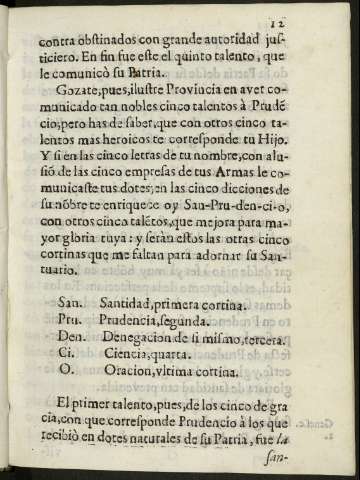 12
contra obstinados con grande autoridad jus-
ticiero. En fin fue este el quinto talento, que
le comunicò su Patria.
Gozate, pues, ilustre Provincia en aver co-
municado tan nobles cinco talentos à Prudē
cio, pero has de saber, que con otros cinco ta-
lentos mas heroicos te corresponde tu Hijo.
Y si en las cinco letras de tu nombre, con alu-
siō de las cinco empresas de tus Armas le co-
municaste tus dotes; en las cinco dicciones de
su nōbre te enriquece oy San-Pru-den-ci-o,
con otros cinco talētos, que mejora para ma-
yor gloria tuya: y seràn estos las otras cinco
cortinas que me faltan para adornar su San-
tuario.
San. Santidad, primera cortina.
Pru. Prudencia, segunda.
Den. Denegacion de si mismo, tercera.
Ci. Ciencia, quarta.
O. Oracion, vltima cortina.
El primer talento, pues, de los cinco de gra
cia, con que corresponde Prudencio à los que
recibiò en dotes naturales de su Patria, fue la
san-